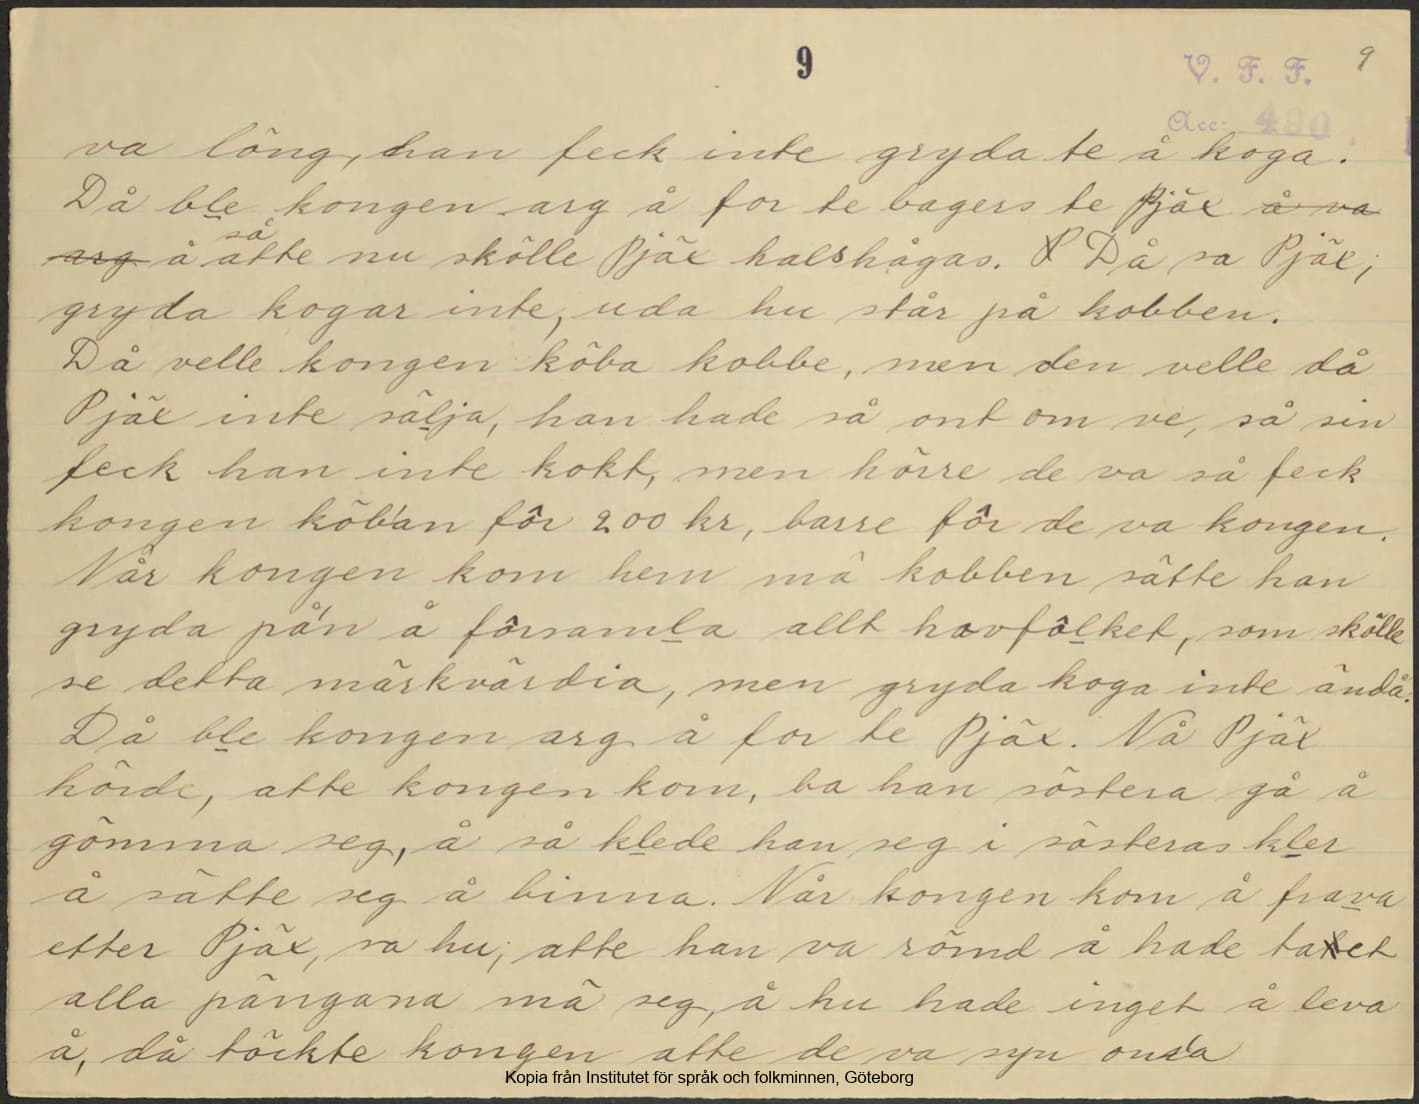 9
9
V. F. F.
Acc: 490.
va lông, han feck inte gryda te å koga.
Då ble kongen arg å for te bagers te Pjäx å va
arg å så atte nu skölle Pjäx halshågas. Då sa Pjäx;
gryda kogar inte, uda hu står på kobben.
Då velle kongen köba kobbe, men den velle då
Pjäx inte sälja, han hade så ont om ve, så sin
feck han inte kokt, men hörre de va så feck
kongen köb'an fôr 200 kr, barre fôr de va kongen.
Når kongen kom hem mä kobben sätte han
gryda på'n å fôrsamla allt hovfôlket, som skölle
se detta märkvärdia, men gryda koga inte ändå.
Då ble kongen arg å for te Pjäx. Nå Pjäx
hörde, atte kongen kom, ba han söstera gå å
gömma seg, å så klede han seg i sösteras kler
å sätte seg å binna. Når kongen kom å frava
etter Pjäx, sa hu; atte han va römd å hade tatet
alla pängana mä seg, å hu hade inget å leva
å, då töckte kongen atte de va syn
Kopia från Institutet för språk och folkminnen, Göteborg